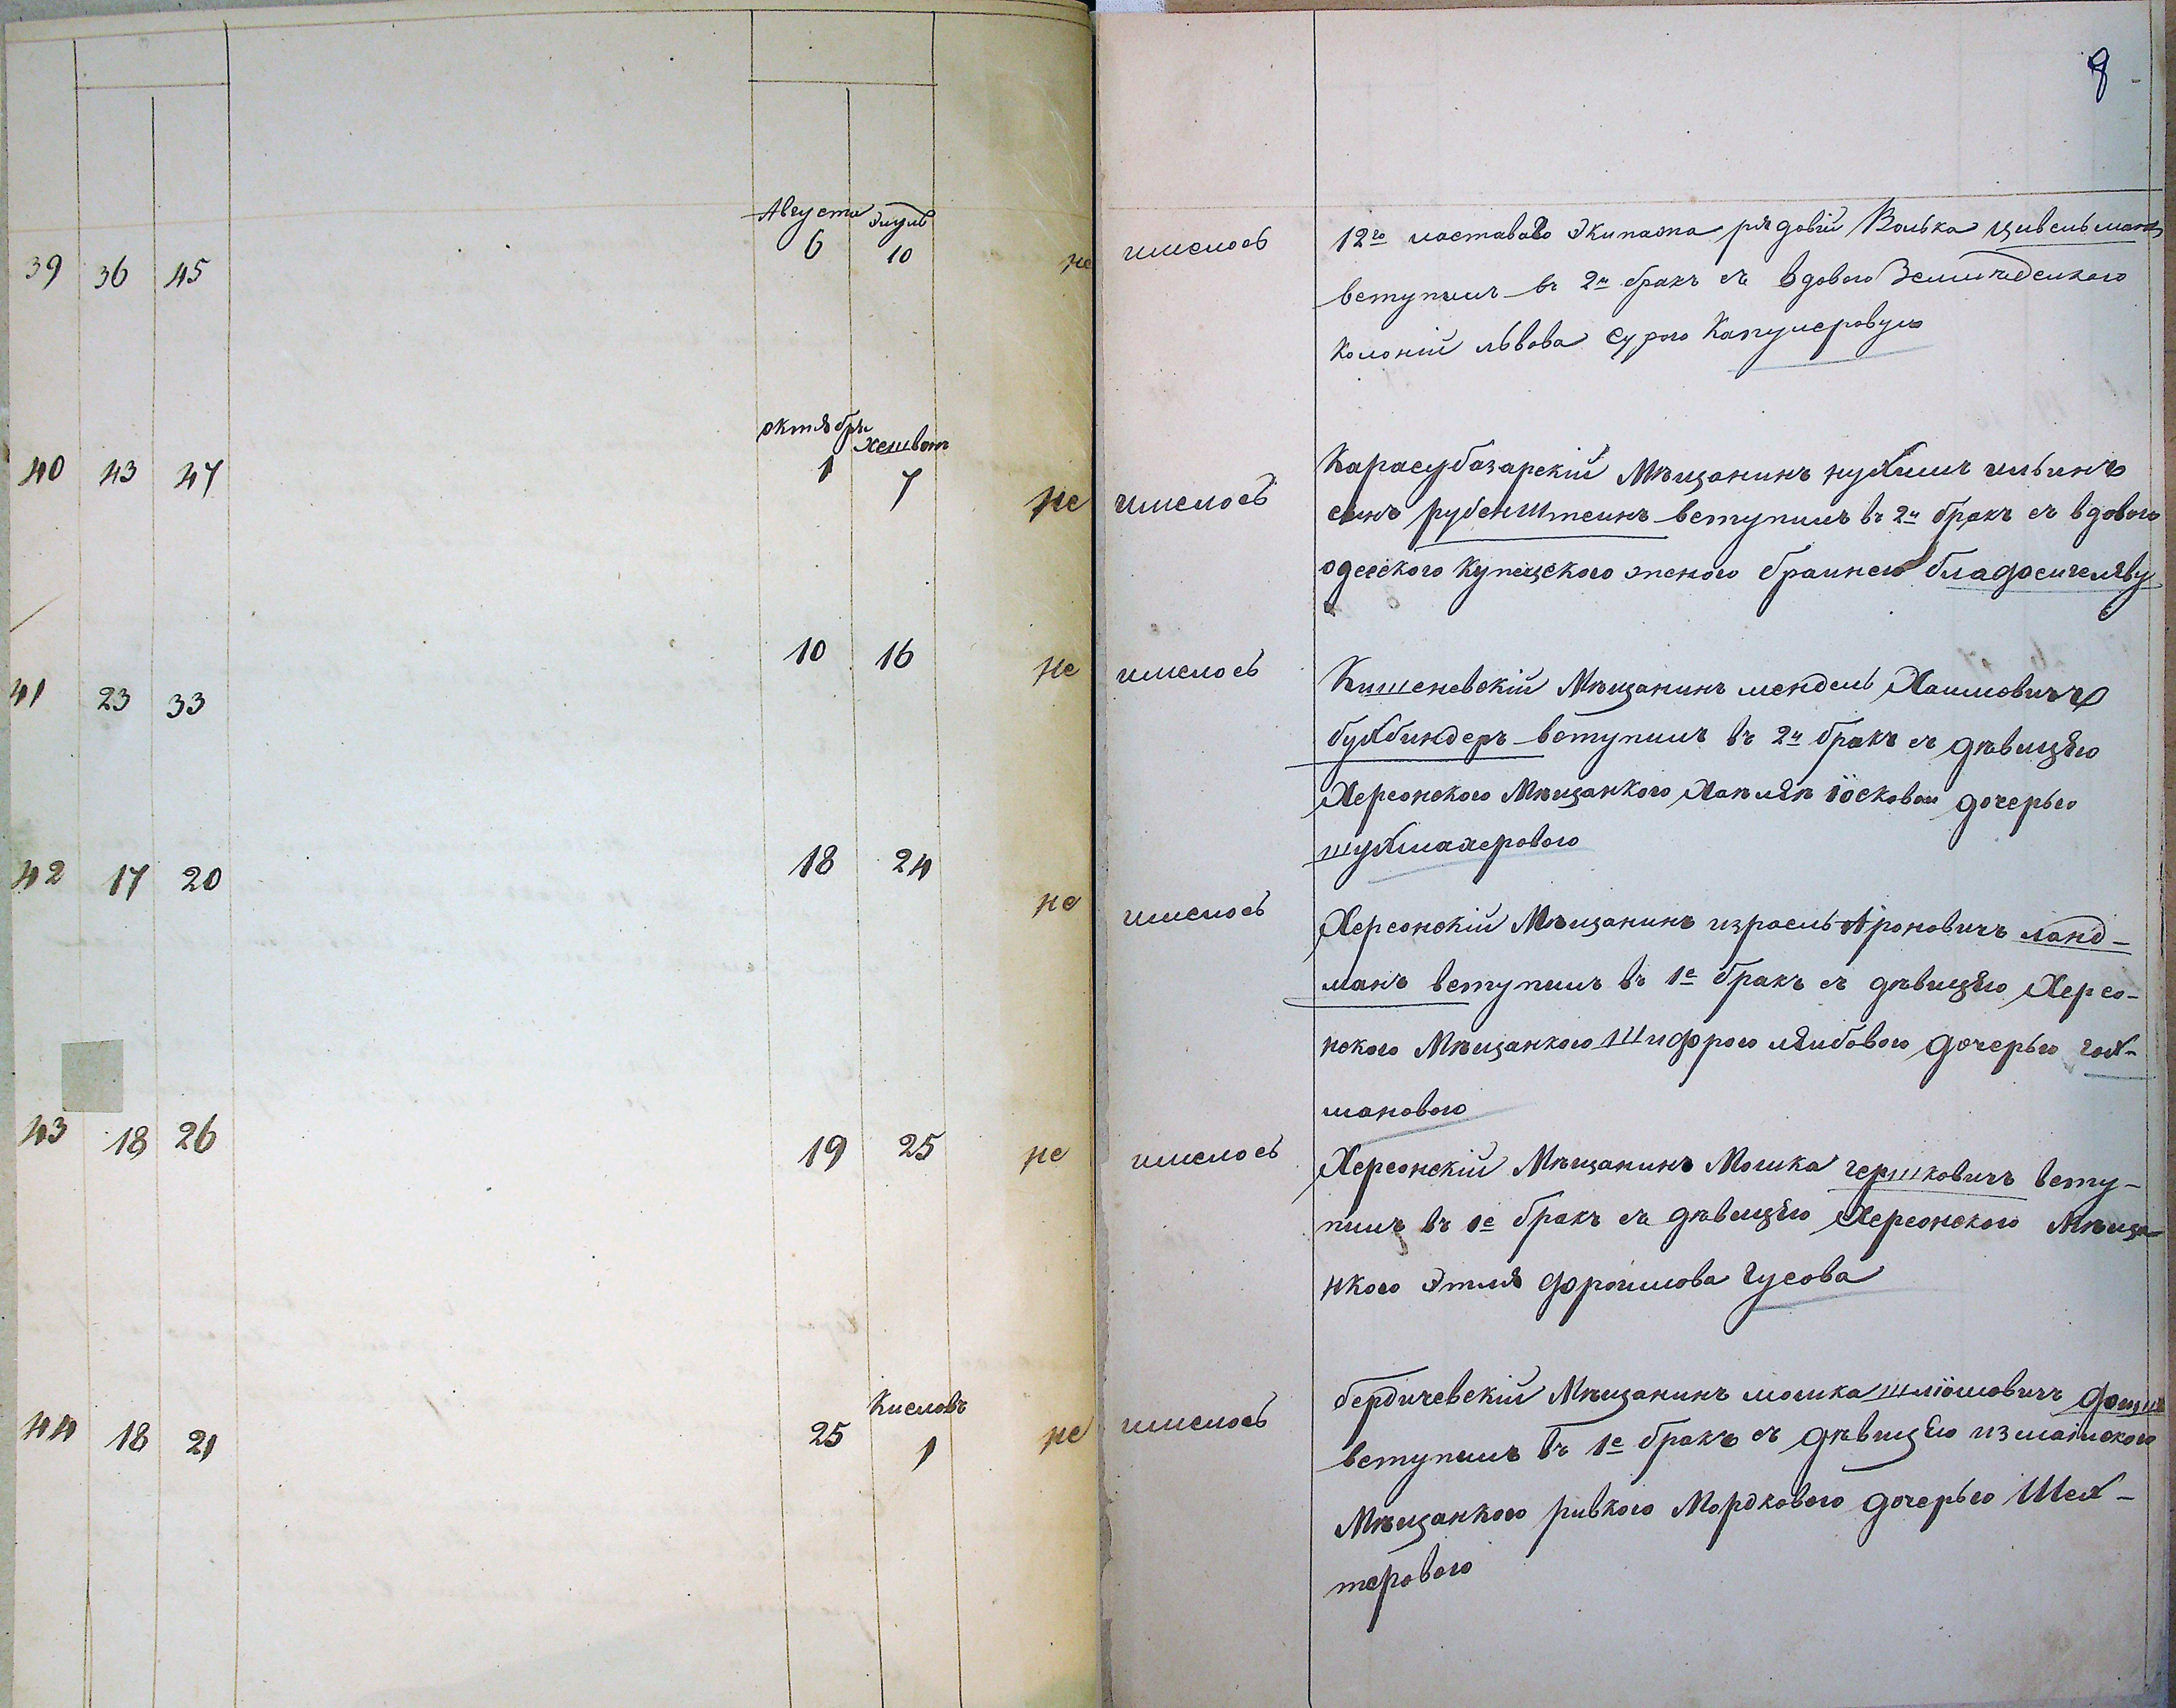 8
Августа Элулъ
39 36 45 6 10 не имелось
12го ластаваго экипажа рядовій Волька Цивельманъ
вступилъ въ 2й бракъ съ вдовою
Колоніи Львова Сурою
октябри Хешванъ
40 43 47 1 7 не имелось
Карасубазарскій Мѣщанинъ нухимъ ильинъ
синъ рубенштеинъ вступилъ въ 2й бракъ съ вдовою
одесскою купецскою женою браинею
41 23 33 10 16 не имелось
Кишеневскій Мѣщанинъ мендель Хаимовичъ
бухбиндеръ вступилъ въ 2й бракъ съ дѣвицѣю
Херсонскою Мѣщанкою іосковои дочерью
шухмахеровою
42 17 20 18 24 не имелось
Херсонскій Мѣщанинъ израель Ароновичъ ланд-
манъ вступилъ въ 1е бракъ съ дѣвицѣю Херсо-
нскою Мѣщанкою Шифрою лѣибовою дочерью гох-
мановою
43 18 26 19 25 не имелось
Херсонскій Мѣщанинъ Мошка гершковичъ всту-
пилъ въ 1е бракъ съ дѣвицѣю Херсонскою Мѣща-
нкою Этля фроимова Гусова
Кисловъ
44 18 21 25 1 не имелось
бердичевскій Мѣщанинъ мошка шліомовичъ
вступилъ въ 1е бракъ съ дѣвицѣю измаилскою
Мѣщанкою ривкою Мордковою дочерью Шех-
теровою